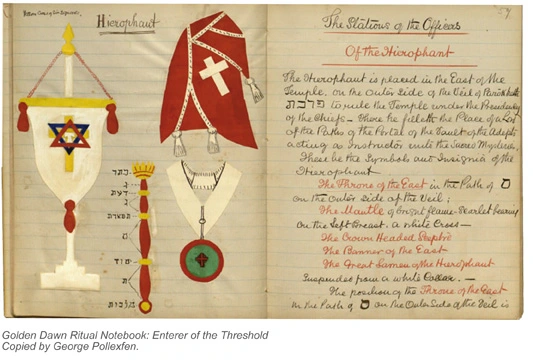 Hierophant
כתר
דעת
תפארת
יסוד
ת
מלכות
The Stations of the Officers
Of the Hierophant
The Hierophant is placed in the East of the
Temple, on the Outer Side of the Veil
פרכת to rule the Temple under the Presidency
of the Chiefs — There he filleth the Place of a
of the Paths of the Portal of the Vault of the Adepts
acting as Instructor unto the Sacred Mysteries.
These be the Symbols and Insignia of the
Hierophant
The Throne of the East in the Path of ס
on the Outer Side of the Veil;
The Mantle of bright flame-Scarlet bearing
on the Left breast a white Cross —
The Crown Headed Sceptre
The Banner of the East
The Great Lamen of the Hierophant
Suspended from a white Collar. —
The position of the Throne of the East
in the Path of ס on the Outer Side of the Veil is
Golden Dawn Ritual Notebook: Enterer of the Threshold
Copied by George Pollexfen.